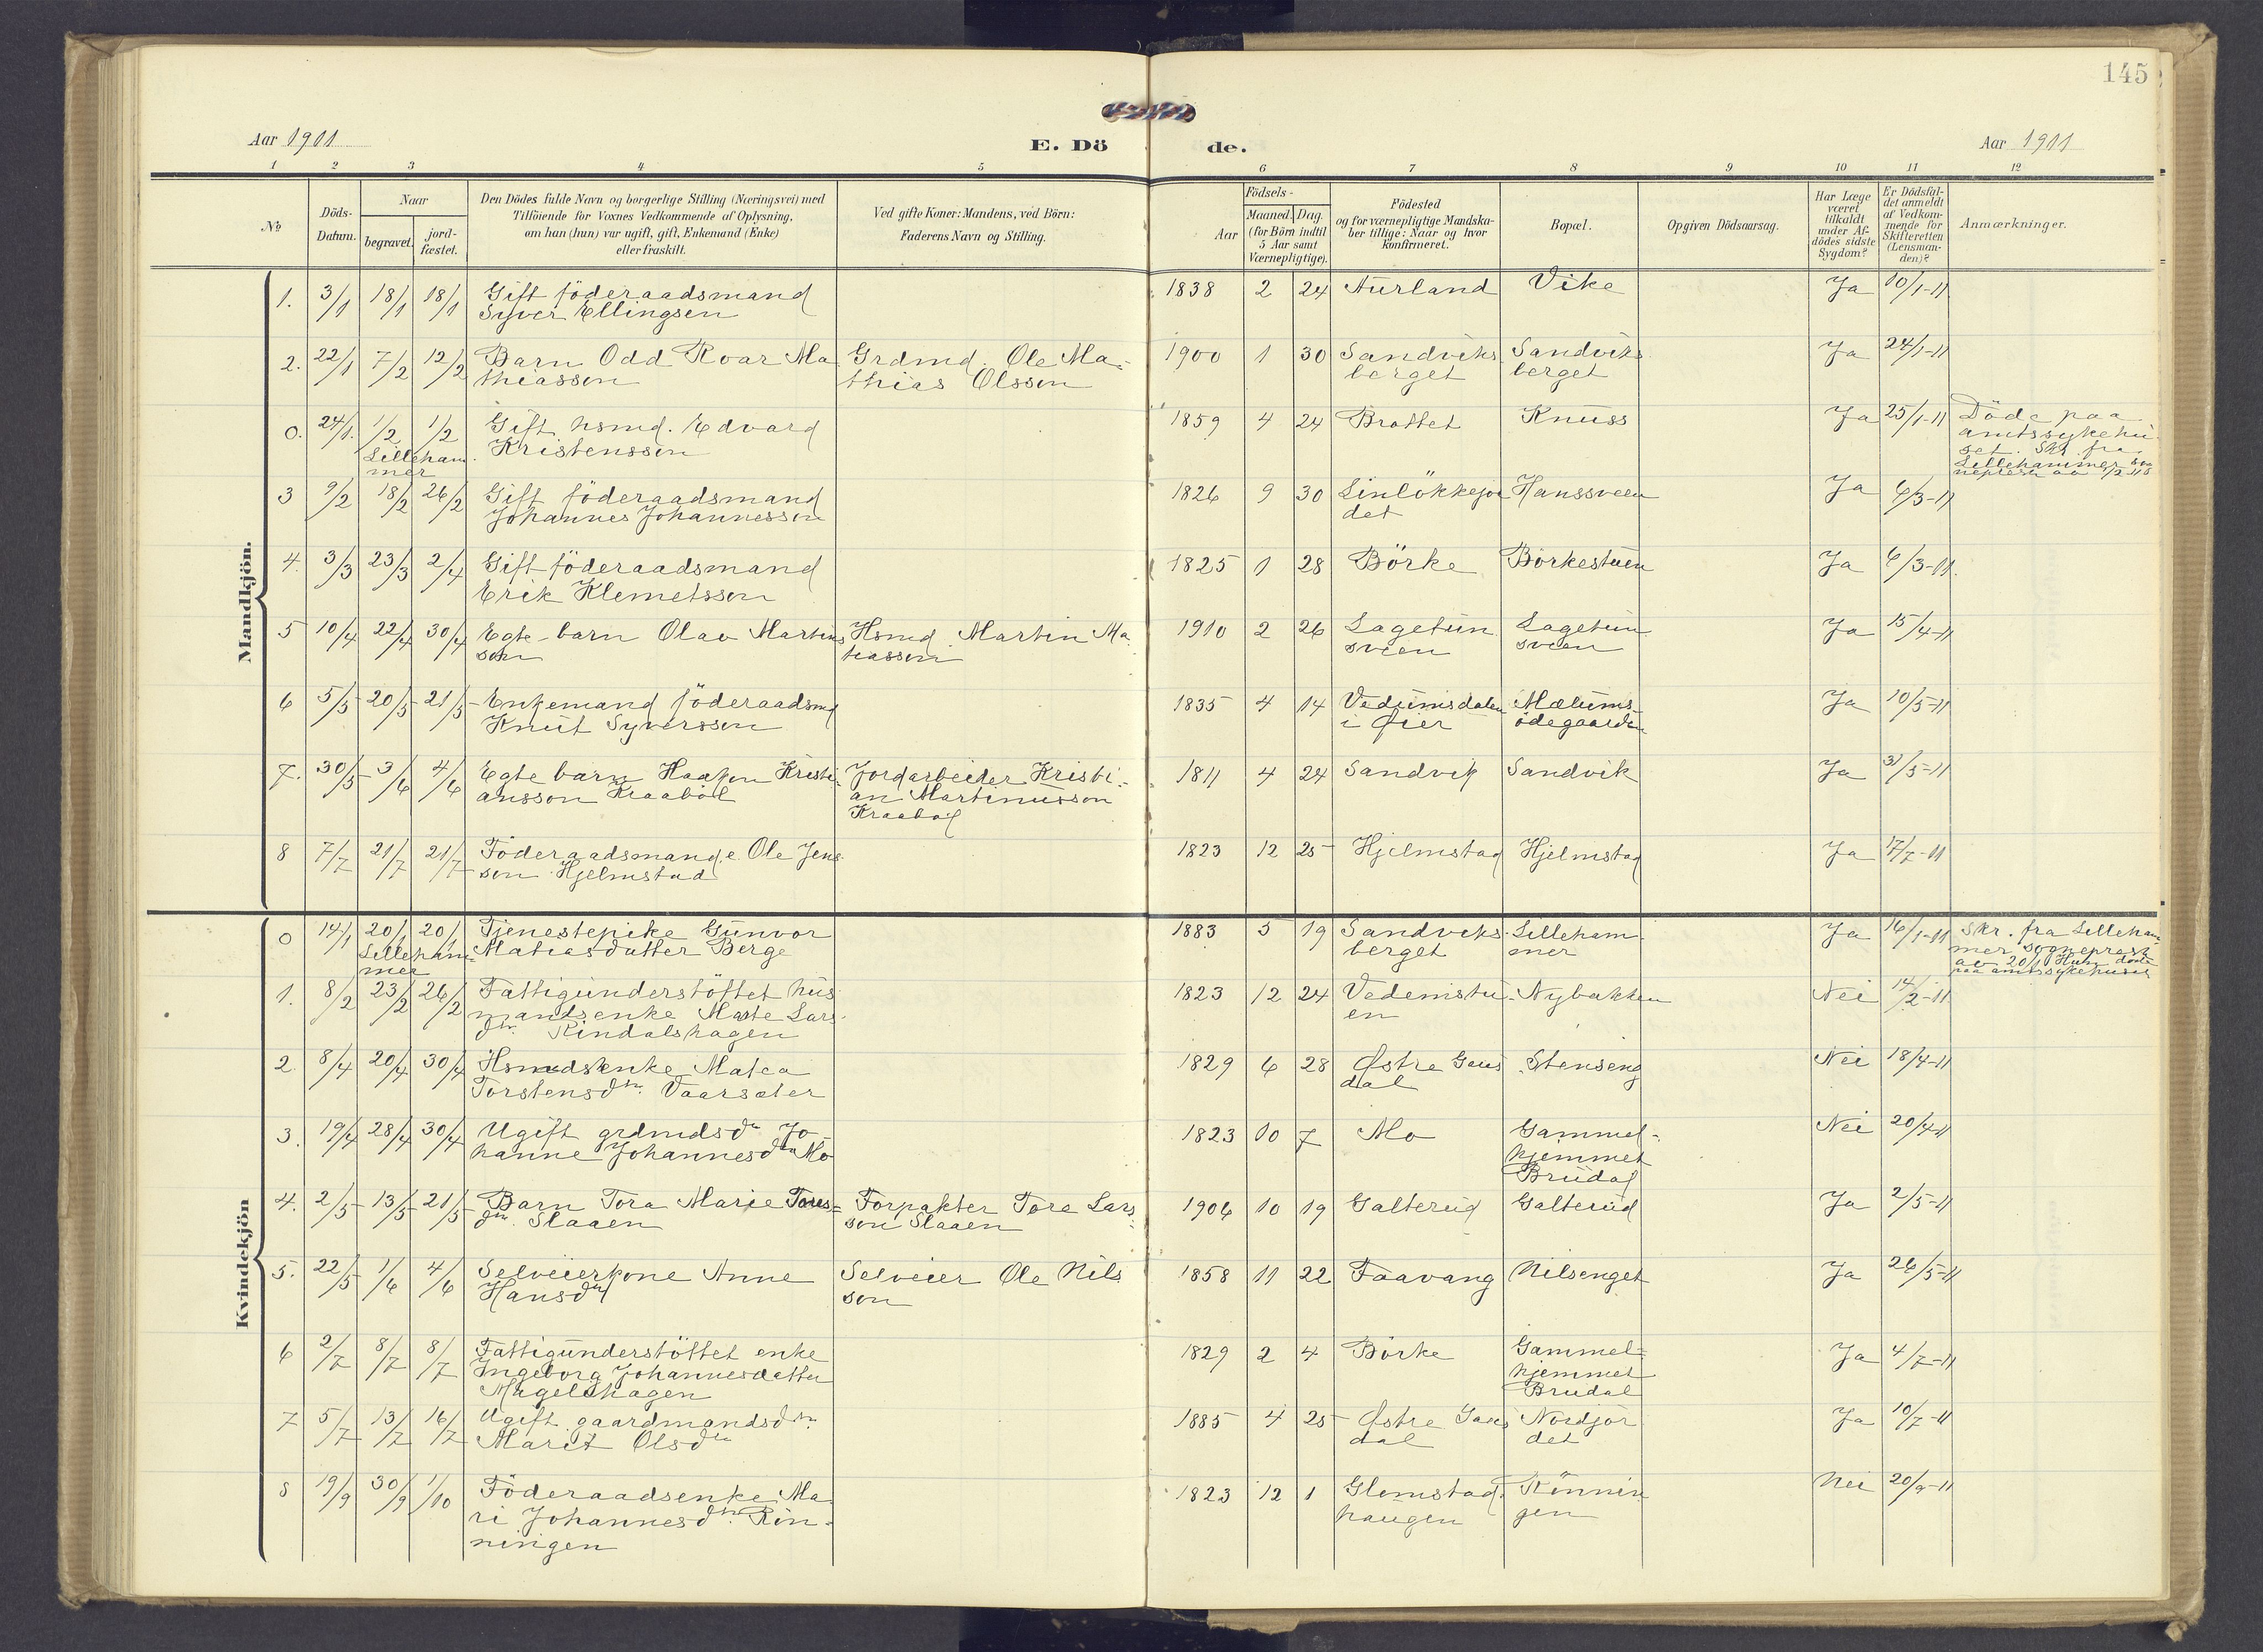 145
Aar 1911
E. Dö
de.
Aar 1911
1 2 3 4 5 6 7 8 9 10 11 12
No
Döds-
Datum.
Naar
begravet.
jord-
fæstet.
Den Dödes fulde Navn og borgerlige Stilling (Næringsvei) med
Tilföiende for Voxnes Vedkommende af Oplysning,
om han (hun) var ugift, gift, Enkemand (Enke)
eller fraskilt.
Ved gifte Koner: Mandens, ved Börn:
Faderens Navn og Stilling.
Födsels-
Aar
Maaned. Dag.
(for Börn indtil
5 Aar samt
Værnepligtige).
Födested
og for værnepligtige Mandska-
ber tillige: Naar og hvor
konfirmeret.
Bopæl.
Opgiven Dödsaarsag.
Har Læge
været
tilkaldt
under Af-
dödes sidste
Sygdom?
Er Dödsfal-
det anmeldt
af Vedkom-
mende for
Skifteretten
(Lensman-
den)?
Anmærkninger.
Mandkjön.
1. 3/1 18/1 18/1 Gift föderaadsmand 1838 2 24 Aurland Vike Ja 10/1-11
Syver Ellingsen
2. 22/1 7/2 12/2 Barn Odd Roar Ma Grdmd. Ole Ma- 1900 1 30 Sandviks Sandviks Ja 24/1-11
thiassen thias Olssen berget berget
0. 24/1. 1/2 1/2 Gift hsmd. Edvard 1859 4 24 Brattet Knuss Ja 25/1-11 Döde paa
Lilleham Kristenssen amtssykehu
mer set. Skr. fra
Lillehammer
3 9/2 18/2 26/2 Gift föderaadsmand 1826 9 30 Linlökkejor Hanssveen Ja 6/3-11
Johannes Johannessen det
4. 3/3 23/3 2/4 Gift föderaadsmand 1825 1 28 Börke Börkestuen Ja 6/3-11.
Erik Klemetssen
5 10/4 22/4 30/4 Egte barn Olav Martins Hsmd Martin Ma 1910 2 26 Lagetun Lagetun Ja 15/4-11
son tiassen sveen sveen
6 5/5 20/5 21/5 Enkemand föderaadsmd 1835 4 14 Vedumsdalen Mælums- Ja 10/5-11
Knut Syverssen i Øier ödegaarden
7. 30/5 3/6 4/6 Egte barn Haakon Kristi- Jordarbeider Kristi- 1811 4 24 Sandvik Sandvik Ja 31/5-11
ansson Kraaböl an Martinusson
Kraaböl
8 7/7 21/7 21/7 Föderaadsmand e. Ole Jens 1823 12 25 Hjelmstad Hjelmstad Ja 17/7-11
sen Hjelmstad
Kvindekjön
0 14/1 20/1 20/1 Tjenestepike Gunvor 1883 5 19 Sandviks Lilleham Ja 16/1-11 Skr. fra Lilleham
Lilleham Matiasdatter Berge berget mer mer sogneprest
mer av 20/1 Hun döde
paa amtssykehuset
1. 8/2 23/2 26/2 Fattigunderstöttet hus 1823 12 24 Vedemstu- Nybakken Nei 14/2-11
mandsenke Marte Lars en
dtr. Rindalshagen
2. 8/4 20/4 30/4 Hsmdsenke Matea 1829 6 28 Østre Gaus Stenseng Nei 18/4-11
Torstensdtr. Vaarsæter dal
3. 19/4 28/4 30/4 Ugift grdmdsdtr Jo- 1823 10 7 Mo Gammel- Nei 20/4-11
hanne Johannesdtr Mo hjemmet
Brudal
4. 2/5 13/5 21/5 Barn Tora Marie Tores- Forpakter Tore Lars 1906 10 19 Galterud Galterud Ja 2/5-11
dtr. Slaaen son Slaaen
5. 22/5 1/6 4/6 Selveierkone Anne Selveier Ole Nils 1858 11 22 Faavang Nilsenget Ja 26/5-11
Hansdtr son
6 2/7 8/7 8/7 Fattigunderstöttet enke 1829 2 4 Börke Gammel- Ja 4/7-11
Ingeborg Johannesdatter hjemmet
Magelihagen Brudal
7 5/7 13/7 16/7 Ugift gaardmandsdtr. 1885 4 25 Østre Gaus Nordjor Ja 10/7-11
Marit Olsdtr dal det
8 19/9 30/9 1/10 Föderaadsenke Ma 1823 12 1 Glemstad Rönnin Nei 20/9-11
ri Johannesdtr. Rön- haugen gen
ningen